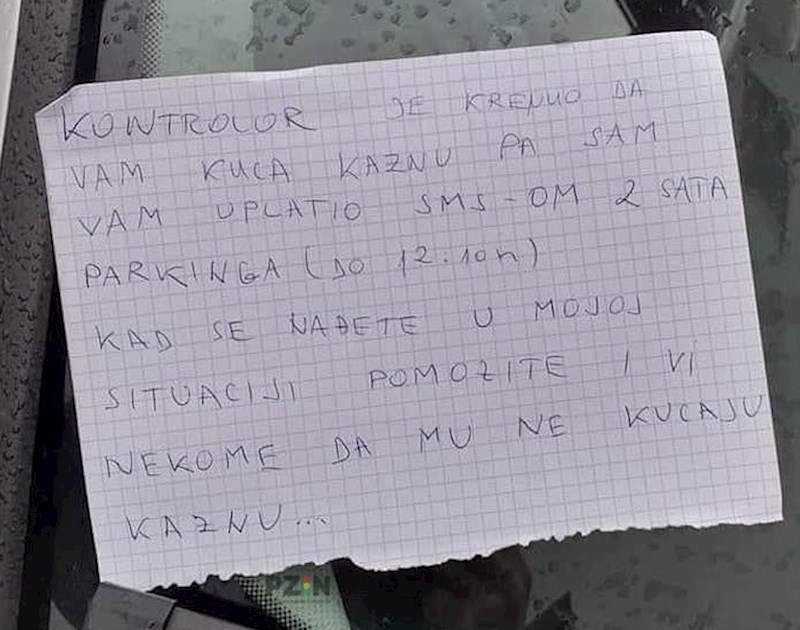 KONTROLOR JE KRENUO DA
VAM KUCA KAZNU PA SAM
VAM UPLATIO SMS-OM 2 SATA
PARKINGA (DO 12:10h)
KAD SE NAĐETE U MOJOJ
SITUACIJI POMOZITE I VI
NEKOME DA MU NE KUCAJU
KAZNU...
PZIN